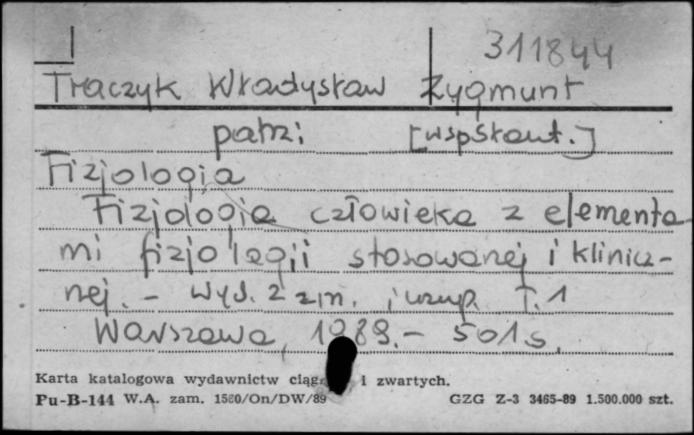 311844
Traczyk Władysław Zygmunt
patrz: [współaut.]
Fizjologia
Fizjologia człowieka z elementa
mi fizjologii stosowanej i klinicz-
nej. - Wyd. 2 zm. i uzup. T. 1
Warszawa, 1989. - 501 s.
Karta katalogowa wydawnictw i zwartych.
Pu-B-144 W.A. zam. 1580/On/DW/89 GZG Z-3 3465-89 1.500.000 szt.